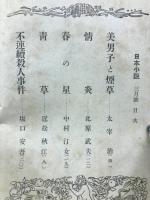 日本小説 三月號 目次
美男子と煙草……太宰治
情炎……北原武夫
春の星……中村汀女
青草……近松秋江
不連續殺人事件
坂口安吾